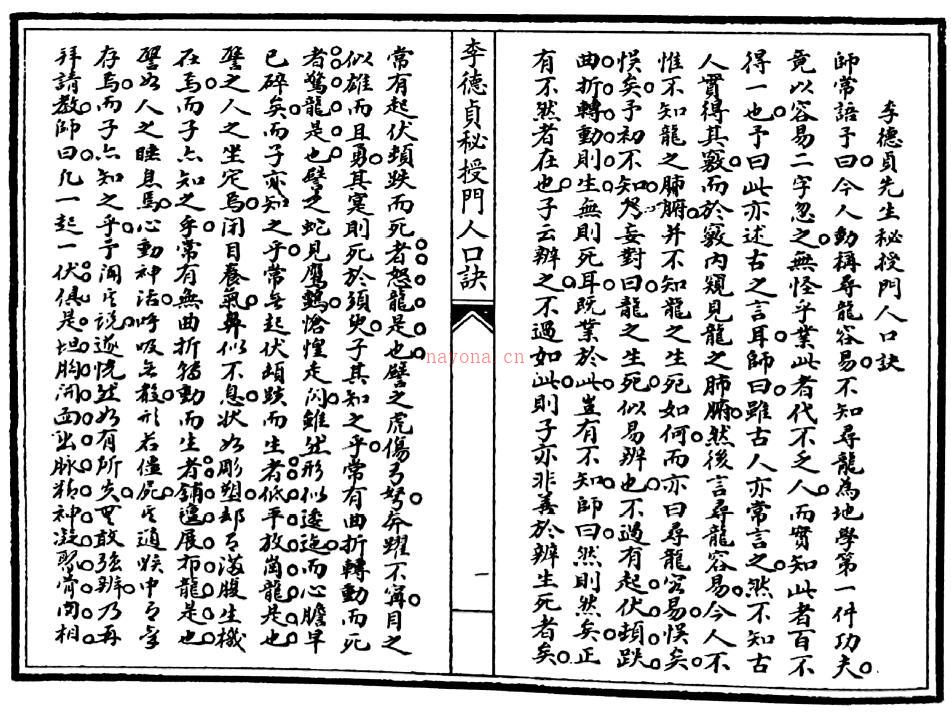 李德貞先生秘授門人口訣
師常語予曰今人動稱尋龍容易不知尋龍為地學第一件功夫
竟以容易二字忽之無怪乎業此者代不乏人而實知此者百不
得一也予曰此亦述古之言耳師曰雖古人亦常言之然不知古
人實得其竅而於竅內窺見龍之肺腑然後言尋龍容易今人不
惟不知龍之肺腑并不知龍之生死如何而亦曰尋龍容易悮矣
悮矣予初不知愕妄對曰龍之生死似易辨也不過有起伏頓跌
曲折轉動則生無則死耳既業於此豈有不知師曰然則然矣正
有不然者在也子云辨之不過如此則子亦非善於辨生死者矣
李德貞秘授門人口訣
一
常有起伏頓跌而死者怒龍是也譬之虎傷弓弩奔躍不寗目之
似雄而且勇其寔則死於須臾子其知之乎常有曲折轉動而死
者驚龍是也譬之蛇見鷹鸇愴惶走閃雖然形似逶迤而心膽早
已碎矣而子亦知之乎常無起伏頓跌而生者低平放崗龍是也
譬之人之坐定焉閉目養氣鼻似不息状如彫塑却有滿腹生機
在焉而子亦知之乎常有無曲折轉動而生者鋪氊展布龍是也
譬如人之睡息焉心動神活呼吸無数形若僵屍其適娱中有寧
存焉而子亦知之乎予聞其說遂恍然如有所失無敢強辨乃再
拜請教師曰凡一起一伏俱是坦胸開面出脉精神凝聚骨肉相
nayona.cn